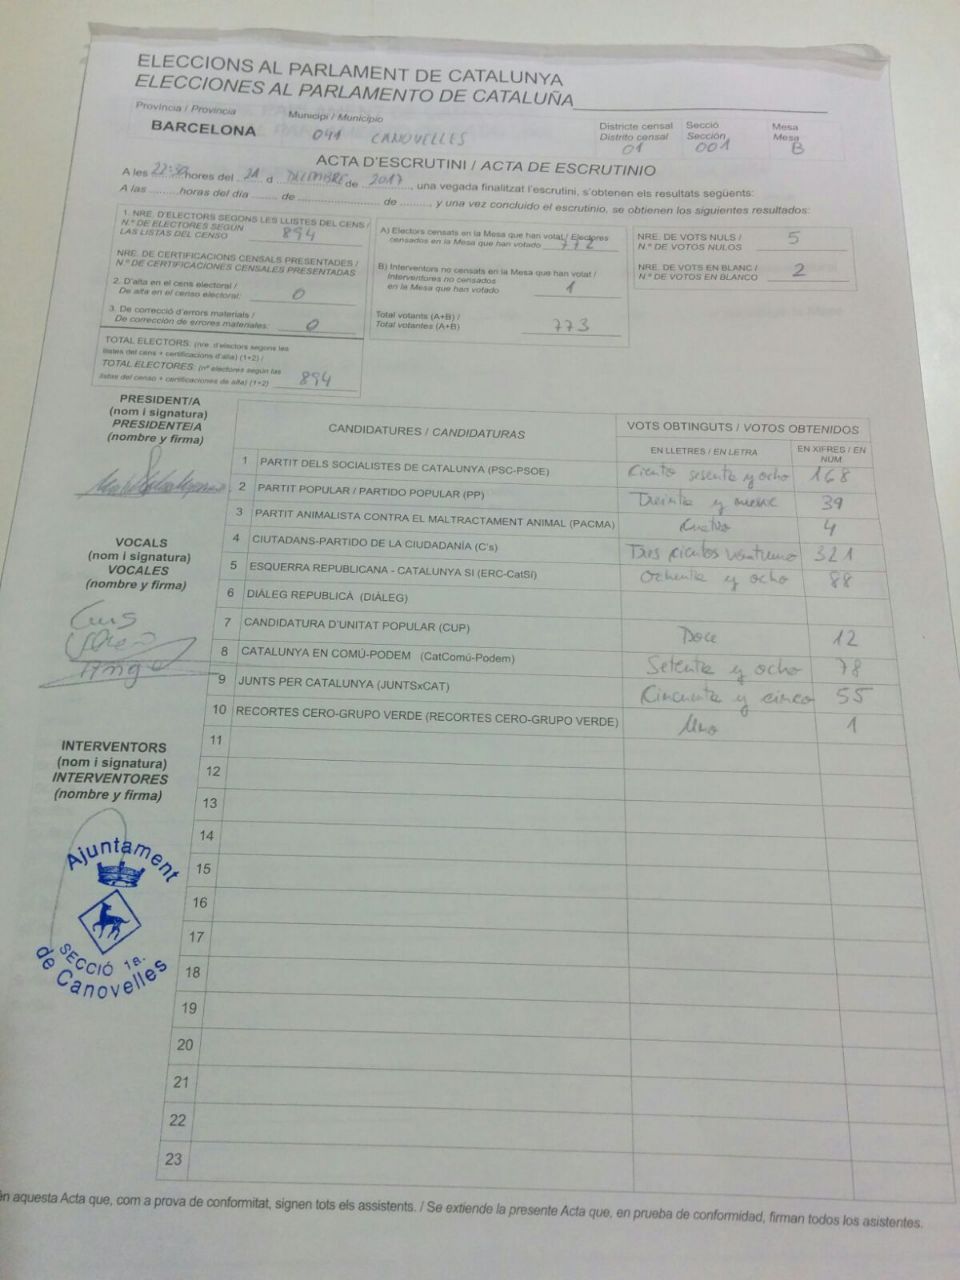 ELECCIONS AL PARLAMENT DE CATALUNYA
ELECCIONES AL PARLAMENTO DE CATALUÑA
Província / Provincia
BARCELONA
Municipi / Municipio
041 CANOVELLES
Districte censal
Distrito censal
01
Secció
Sección
001
Mesa
Mesa
B
ACTA D'ESCRUTINI / ACTA DE ESCRUTINIO
A les 22:30 hores del 21 d DICIEMBRE de 2017, una vegada finalitzat l'escrutini, s'obtenen els resultats següents:
A las ......... horas del día ......... de ......................... de ........, y una vez concluido el escrutinio, se obtienen los siguientes resultados:
1. NRE. D'ELECTORS SEGONS LES LLISTES DEL CENS /
N.º DE ELECTORES SEGÚN
LAS LISTAS DEL CENSO 894
NRE. DE CERTIFICACIONS CENSALS PRESENTADES /
N.º DE CERTIFICACIONES CENSALES PRESENTADAS
2. D'alta en el cens electoral /
De alta en el censo electoral: 0
3. De correcció d'errors materials /
De corrección de errores materiales: 0
TOTAL ELECTORS: (nre. d'electors segons les
llistes del cens + certificacions d'alta) (1+2) /
TOTAL ELECTORES: (nº electores según las
listas del censo + certificaciones de alta) (1+2) 894
A) Electors censats en la Mesa que han votat / Electores
censados en la Mesa que han votado 772
B) Interventors no censats en la Mesa que han votat /
Interventores no censados
en la Mesa que han votado 1
Total votants (A+B) /
Total votantes (A+B) 773
NRE. DE VOTS NULS /
N.º DE VOTOS NULOS 5
NRE. DE VOTS EN BLANC /
N.º DE VOTOS EN BLANCO 2
PRESIDENT/A
(nom i signatura)
PRESIDENTE/A
(nombre y firma)
VOCALS
(nom i signatura)
VOCALES
(nombre y firma)
INTERVENTORS
(nom i signatura)
INTERVENTORES
(nombre y firma)
Ajuntament
SECCIÓ 1a.
de Canovelles
CANDIDATURES / CANDIDATURAS
VOTS OBTINGUTS / VOTOS OBTENIDOS
EN LLETRES / EN LETRA
EN XIFRES / EN NÚM.
1 PARTIT DELS SOCIALISTES DE CATALUNYA (PSC-PSOE) Ciento sesenta y ocho 168
2 PARTIT POPULAR / PARTIDO POPULAR (PP) Treinta y nueve 39
3 PARTIT ANIMALISTA CONTRA EL MALTRACTAMENT ANIMAL (PACMA) Cuatro 4
4 CIUTADANS-PARTIDO DE LA CIUDADANÍA (C's) Tres cientos veintiuno 321
5 ESQUERRA REPUBLICANA - CATALUNYA SÍ (ERC-CatSí) Ochenta y ocho 88
6 DIÀLEG REPUBLICÀ (DIÀLEG)
7 CANDIDATURA D'UNITAT POPULAR (CUP) Doce 12
8 CATALUNYA EN COMÚ-PODEM (CatComú-Podem) Setenta y ocho 78
9 JUNTS PER CATALUNYA (JUNTSxCAT) Cincuenta y cinco 55
10 RECORTES CERO-GRUPO VERDE (RECORTES CERO-GRUPO VERDE) Uno 1
11
12
13
14
15
16
17
18
19
20
21
22
23
én aquesta Acta que, com a prova de conformitat, signen tots els assistents. / Se extiende la presente Acta que, en prueba de conformidad, firman todos los asistentes.